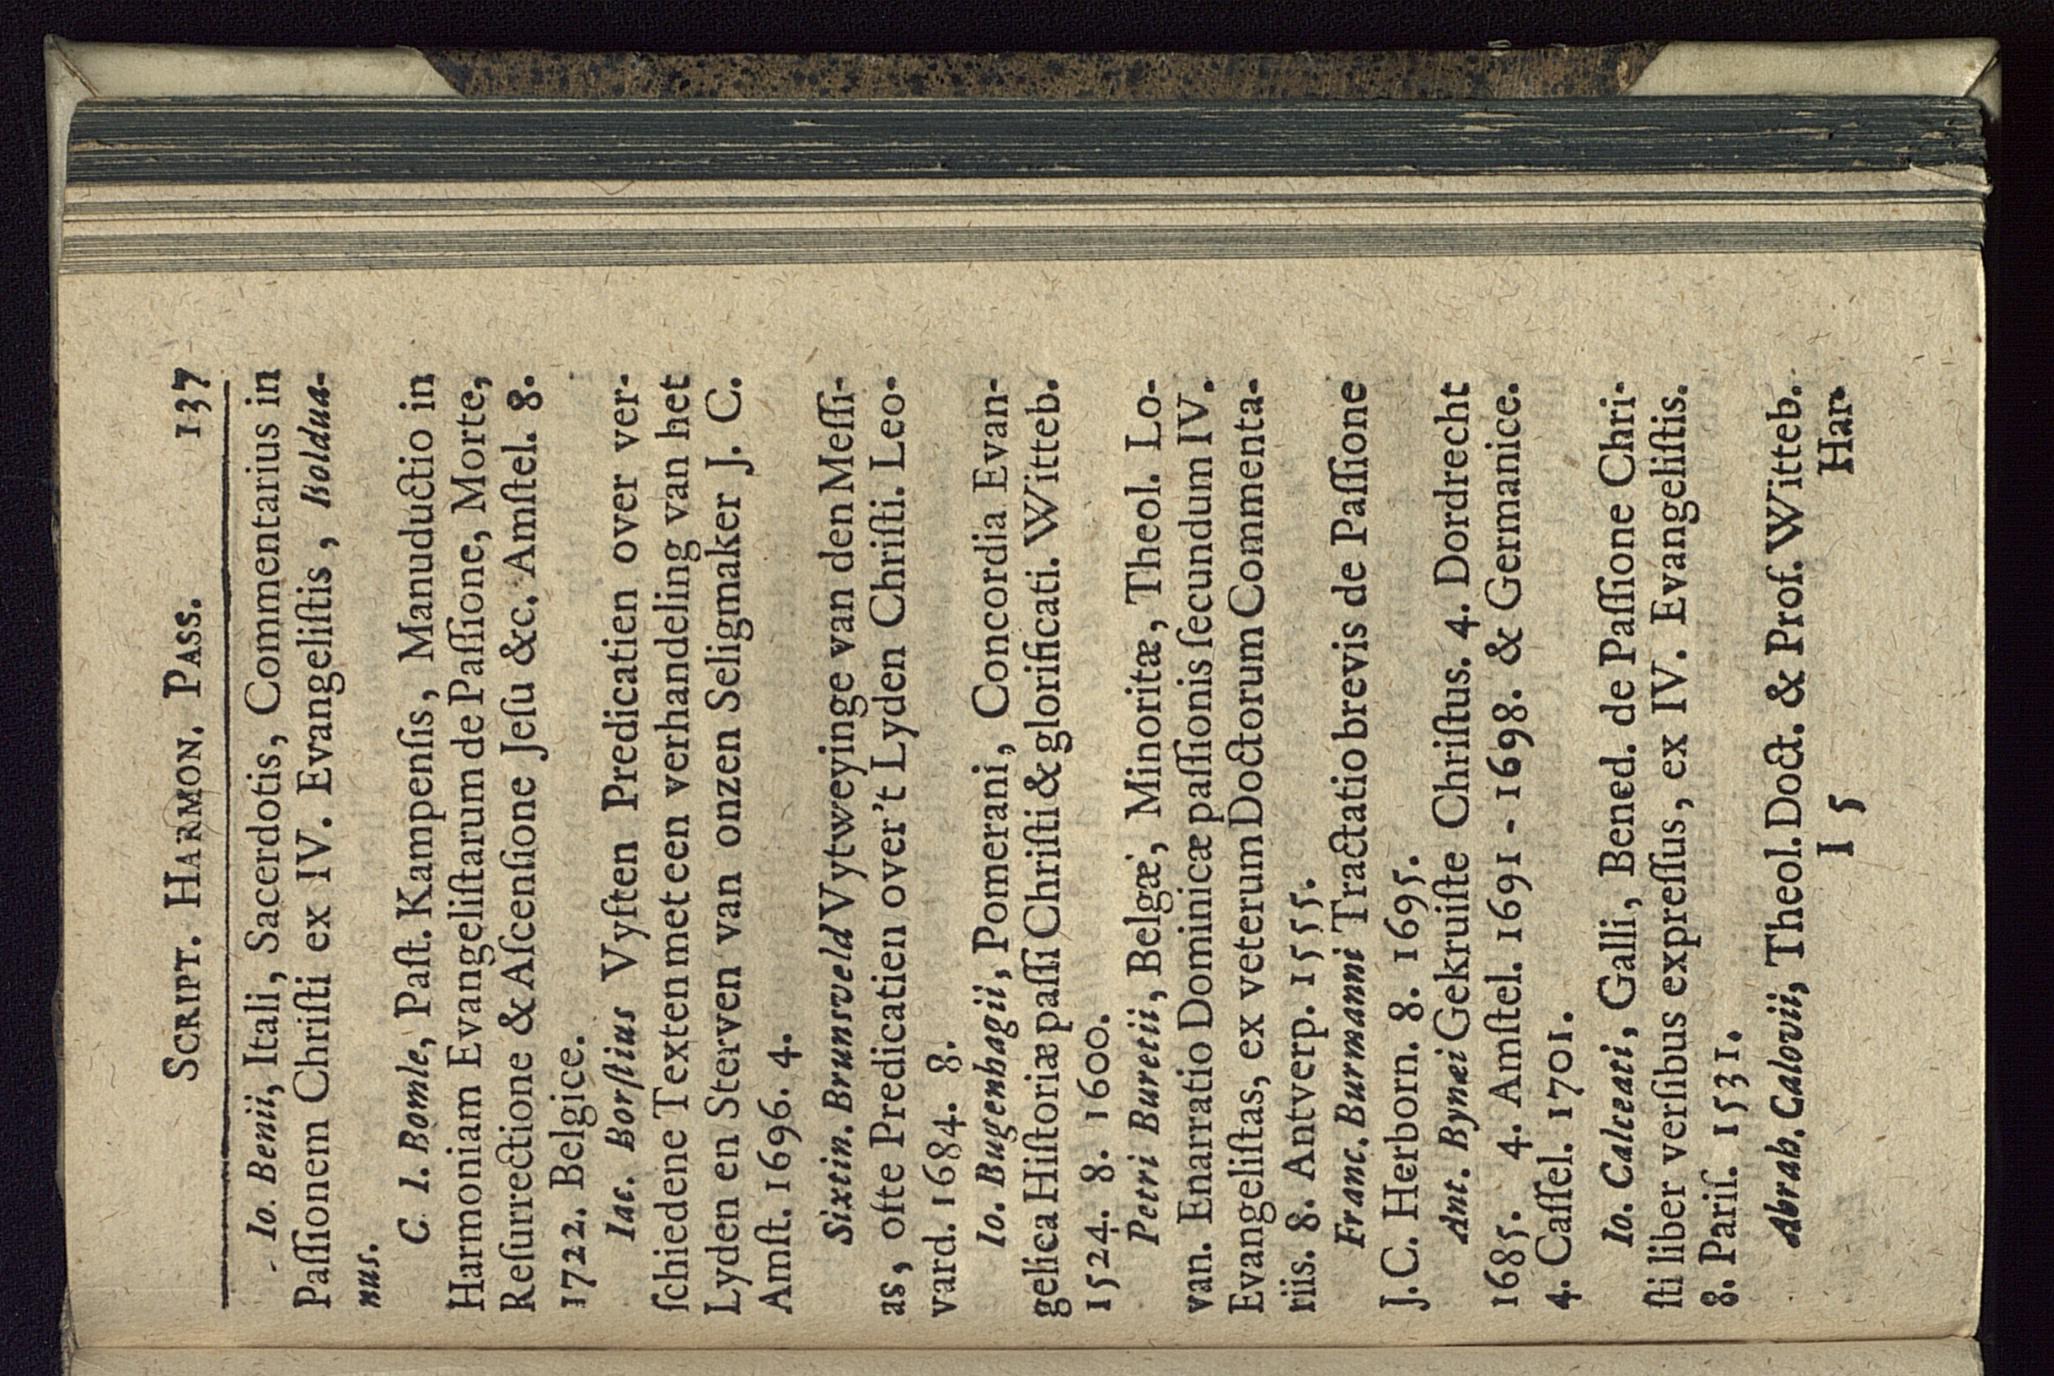 SCRIPT. HARMON. PASS. 137
Io. Benii, Itali, Sacerdotis, Commentarius in
Paſſionem Chriſti ex IV. Evangeliſtis, Boldua-
nus.
C. I. Bomle, Paſt. Kampenſis, Manuductio in
Harmoniam Evangeliſtarum de Paſſione, Morte,
Reſurrectione & Aſcenſione Jeſu &c. Amſtel. 8.
1722. Belgice.
Iac. Borſtius Vyften Predicatien over ver-
ſchiedene Texten met een verhandeling van het
Lyden en Sterven van onzen Seligmaker J. C.
Amſt. 1696. 4.
Sixtin. Brunsveld Vytweyinge van den Meſſi-
as, ofte Predicatien over't Lyden Chriſti. Leo-
vard. 1684. 8.
Io. Bugenhagii, Pomerani, Concordia Evan-
gelica Hiſtoriæ paſſi Chriſti & glorificati. Witteb.
1524. 8. 1600.
Petri Buretii, Belgæ, Minoritæ, Theol. Lo-
van. Enarratio Dominicæ paſſionis ſecundum IV.
Evangeliſtas, ex veterum Doctorum Commenta-
riis. 8. Antverp. 1555.
Franc. Burmanni Tractatio brevis de Paſſione
J. C. Herborn. 8. 1695.
Ant. Bynæi Gekruiſte Chriſtus. 4. Dordrecht
1685. 4. Amſtel. 1691 - 1698. & Germanice.
4. Caſſel. 1701.
Io. Calceati, Galli, Bened. de Paſſione Chri-
ſti liber verſibus expreſſus, ex IV. Evangeliſtis.
8. Pariſ. 1531.
Abrah. Calovii, Theol. Doct. & Prof. Witteb.
I 5 Har-